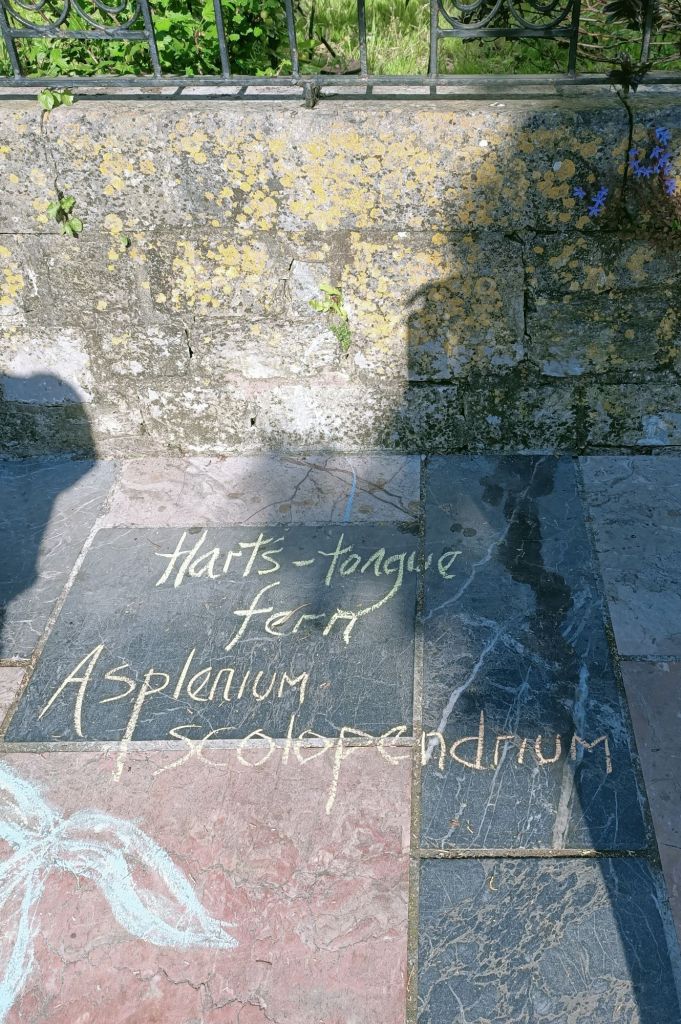 Hart's-tongue
fern
Asplenium
scolopendrium